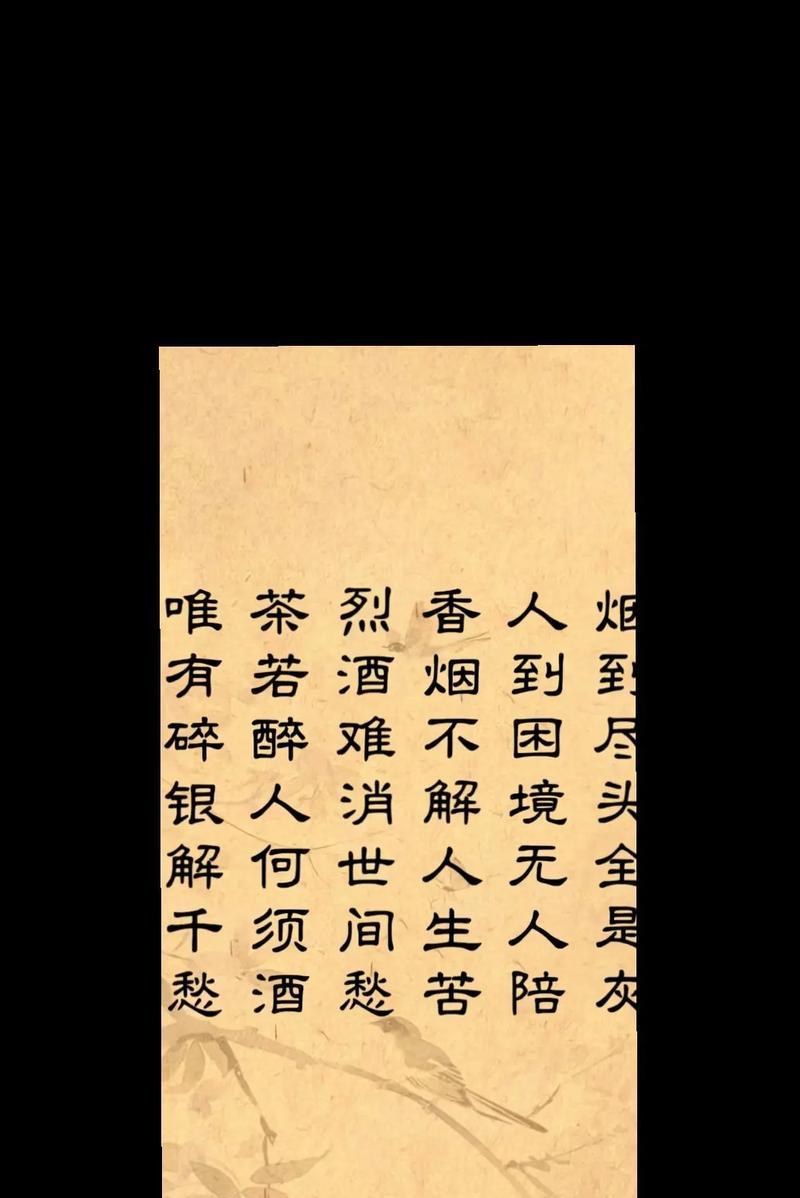 烟到尽头全是灰
人到困境无人陪
香烟不解人生苦
烈酒难消世间愁
茶若醉人何须酒
唯有碎银解千愁